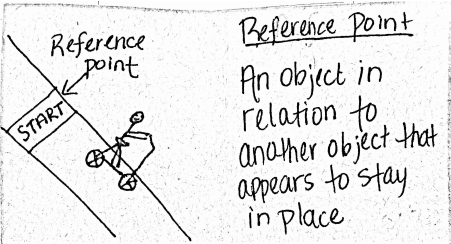 Reference
point
START
Reference point
An object in
relation to
another object that
appears to stay
in place